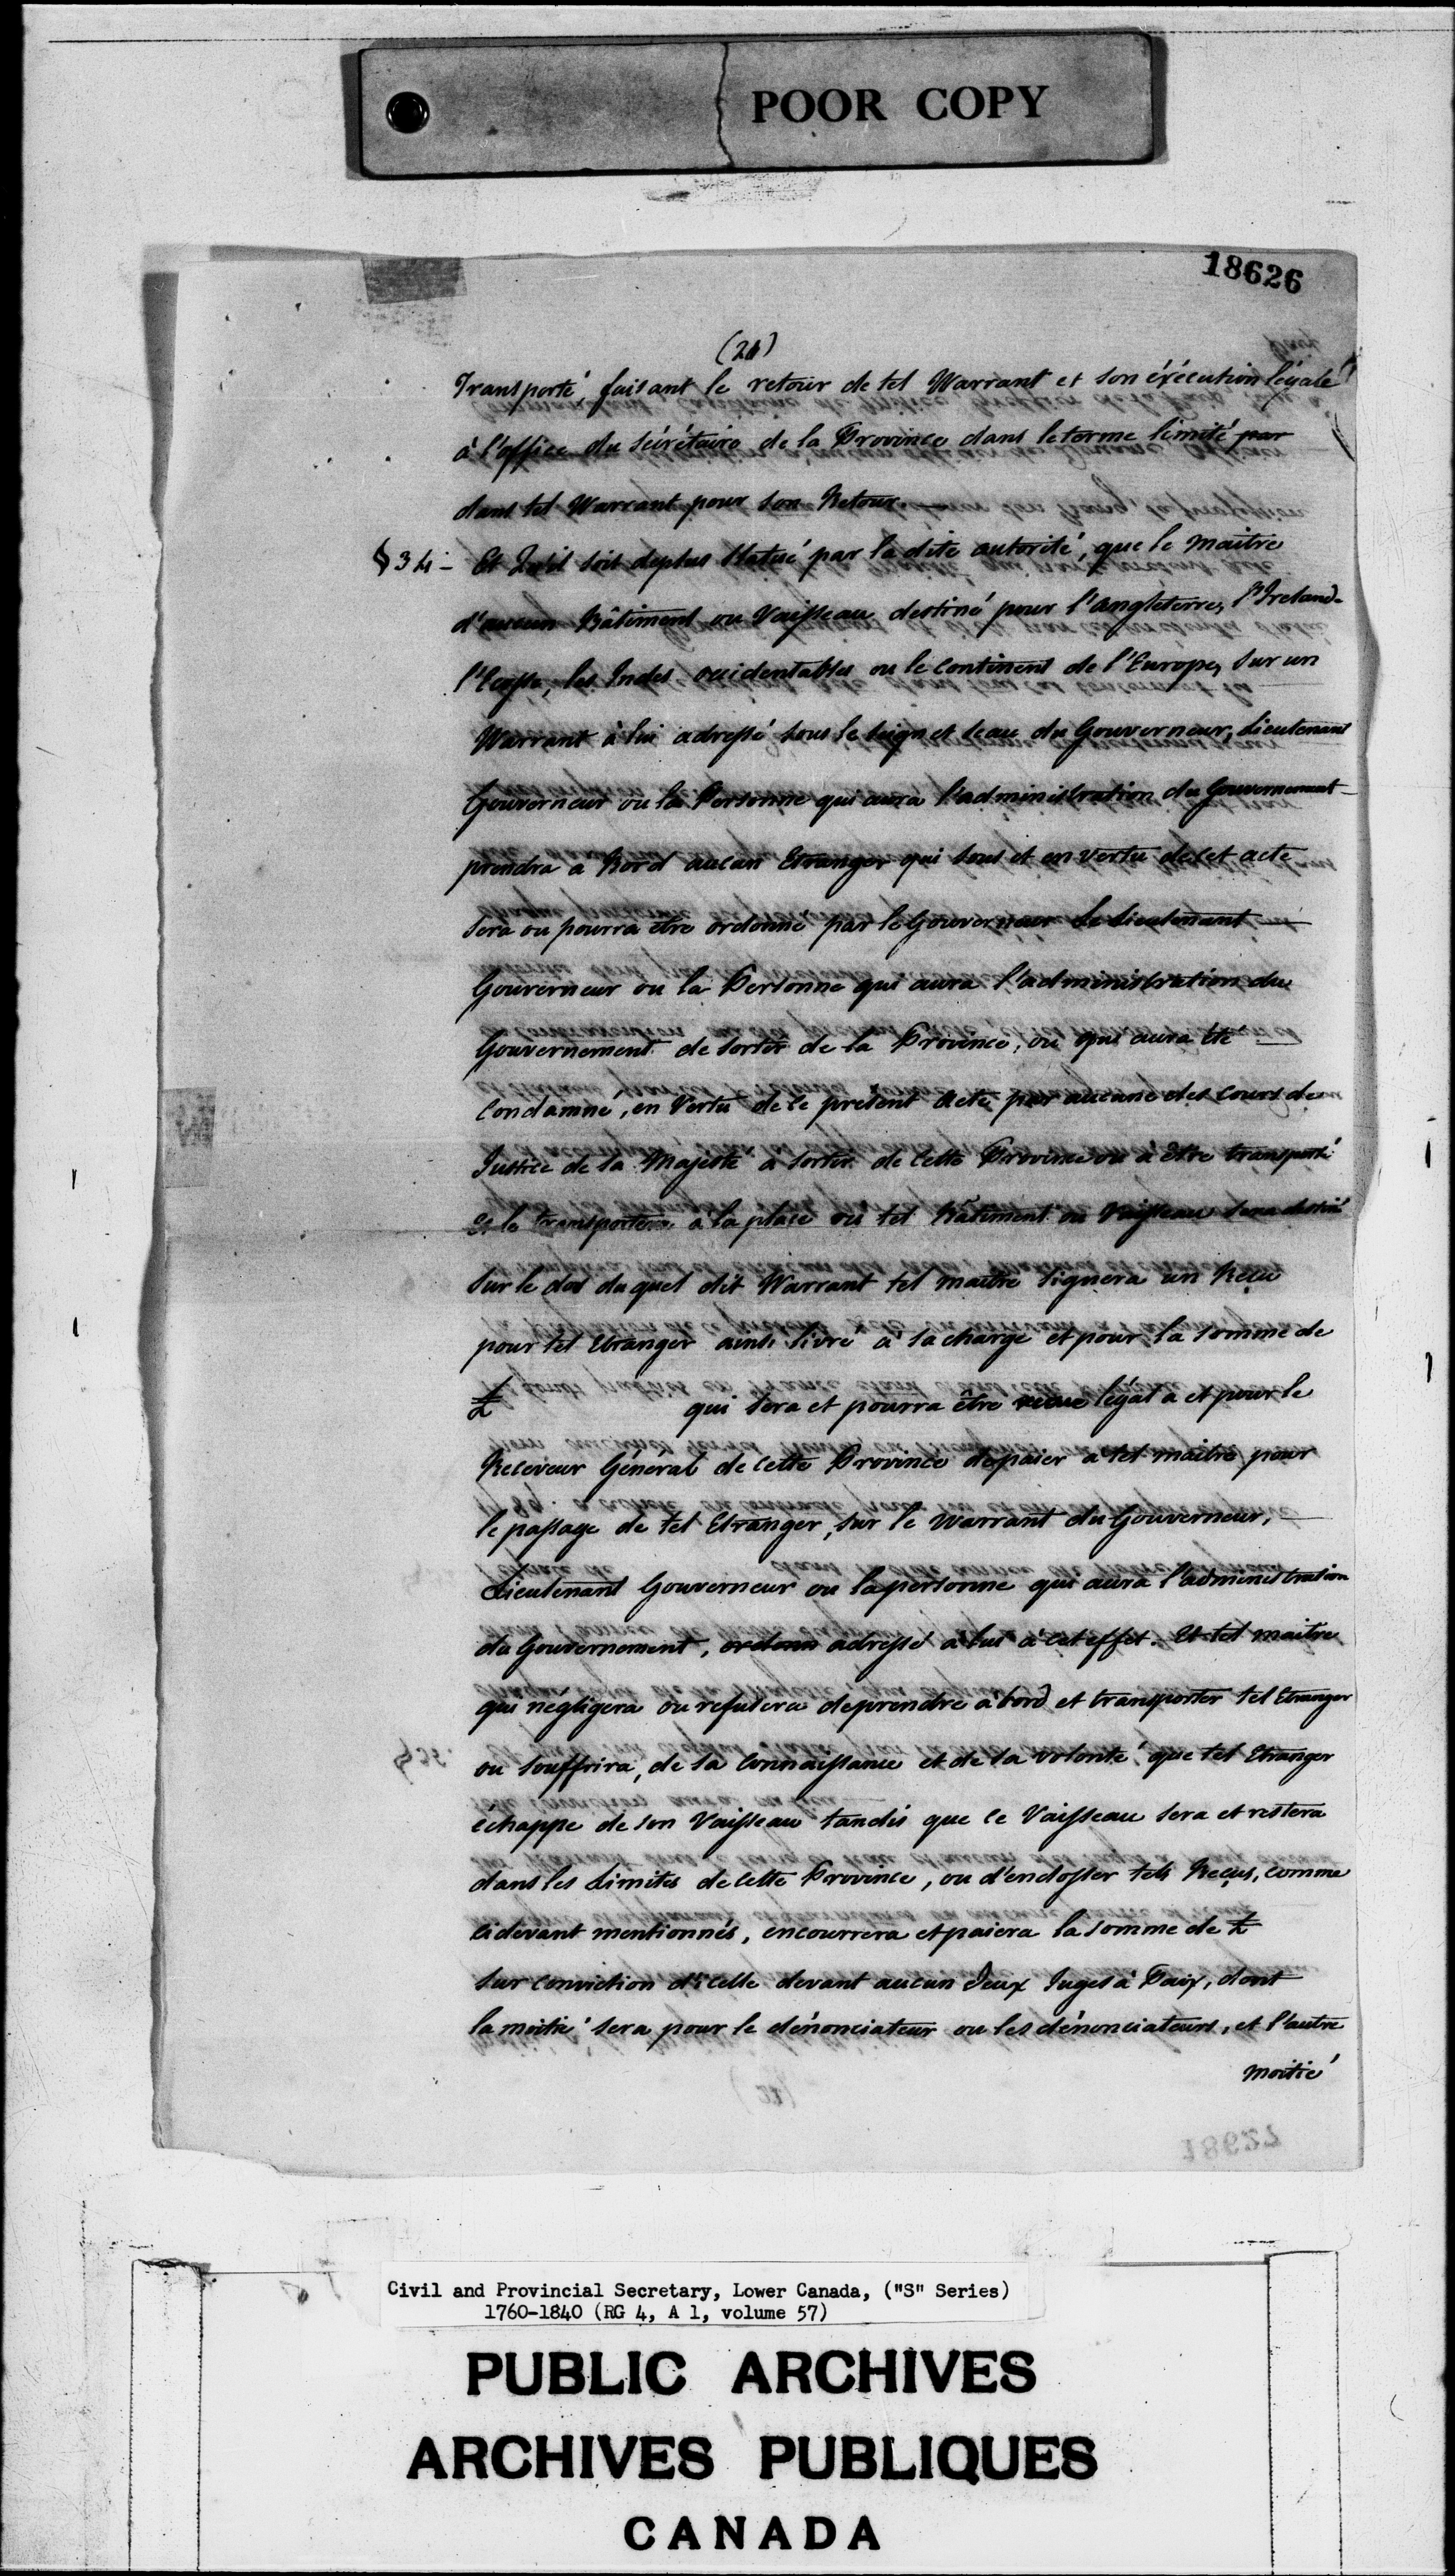 POOR COPY
18626
(21)
Transporté, faisant le retour de tel Warrant et son éxécution légale
à l'office du sécrétaire de la Province dans le terme limité par
dans tel Warrant pour son Retour.
§34- Et Qu'il soit deplus Statué par la dite autorité, que le maitre
d'aucun Bâtiment ou Vaisseau destiné pour l'Angleterre, l'Ireland
l'Ecosse, les Indes occidentales ou le Continent de l'Europe, sur un
Warrant à lui adressé sous le seign et seau du Gouverneur, Lieutenant
Gouverneur ou la Personne qui aura l'administration du Gouvernement
prendra a Bord aucun Etranger qui sous et en vertu de cet acte
sera ou pourra être ordonné par le Gouverneur Le Lieutenant
Gouverneur ou la Personne qui aura l'administration du
Gouvernement de sortir de la Province, ou qui aura été
Condamné, en Vertu de ce présent Acte par aucune des Cours de
Justice de sa Majesté à sortir de cette Province ou à être transporté
et le transportera à la place où tel Bâtiment ou Vaisseau sera destiné
sur le dos duquel dit Warrant tel maitre signera un Reçu
pour tel Etranger ainsi livré à sa charge et pour la somme de
£ qui sera et pourra être légal a et pour le
Receveur Général de cette Province de paier a tel maitre pour
le passage de tel Etranger, sur le Warrant du Gouverneur,
Lieutenant Gouverneur ou la personne qui aura l'administration
du Gouvernement, adressé a lui à cet effet. Et tel maitre
qui négligera ou refusera deprendre à bord et transporter tel Etranger
ou souffrira, de sa Connaissance et de sa volonté que tel Etranger
échappe de son Vaisseau tandis que ce Vaisseau sera et restera
dans les Limites de cette Province, ou d'endosser tels Reçus, comme
cidevant mentionnés, encourrera et paiera la somme de £
sur conviction d'icelle devant aucun Deux Juges à Paix, dont
la moitié sera pour le dénonciateur ou les dénonciateurs, et l'autre
moitié
Civil and Provincial Secretary, Lower Canada, ("S" Series)
1760-1840 (RG 4, A 1, volume 57)
PUBLIC ARCHIVES
ARCHIVES PUBLIQUES
CANADA